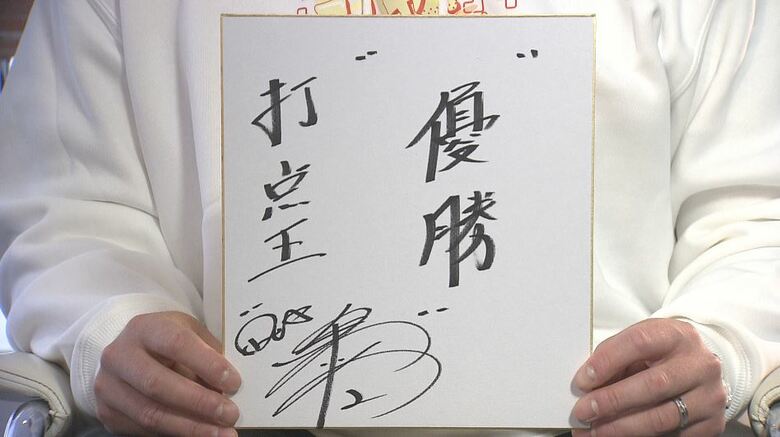 "優勝
打点王"
2